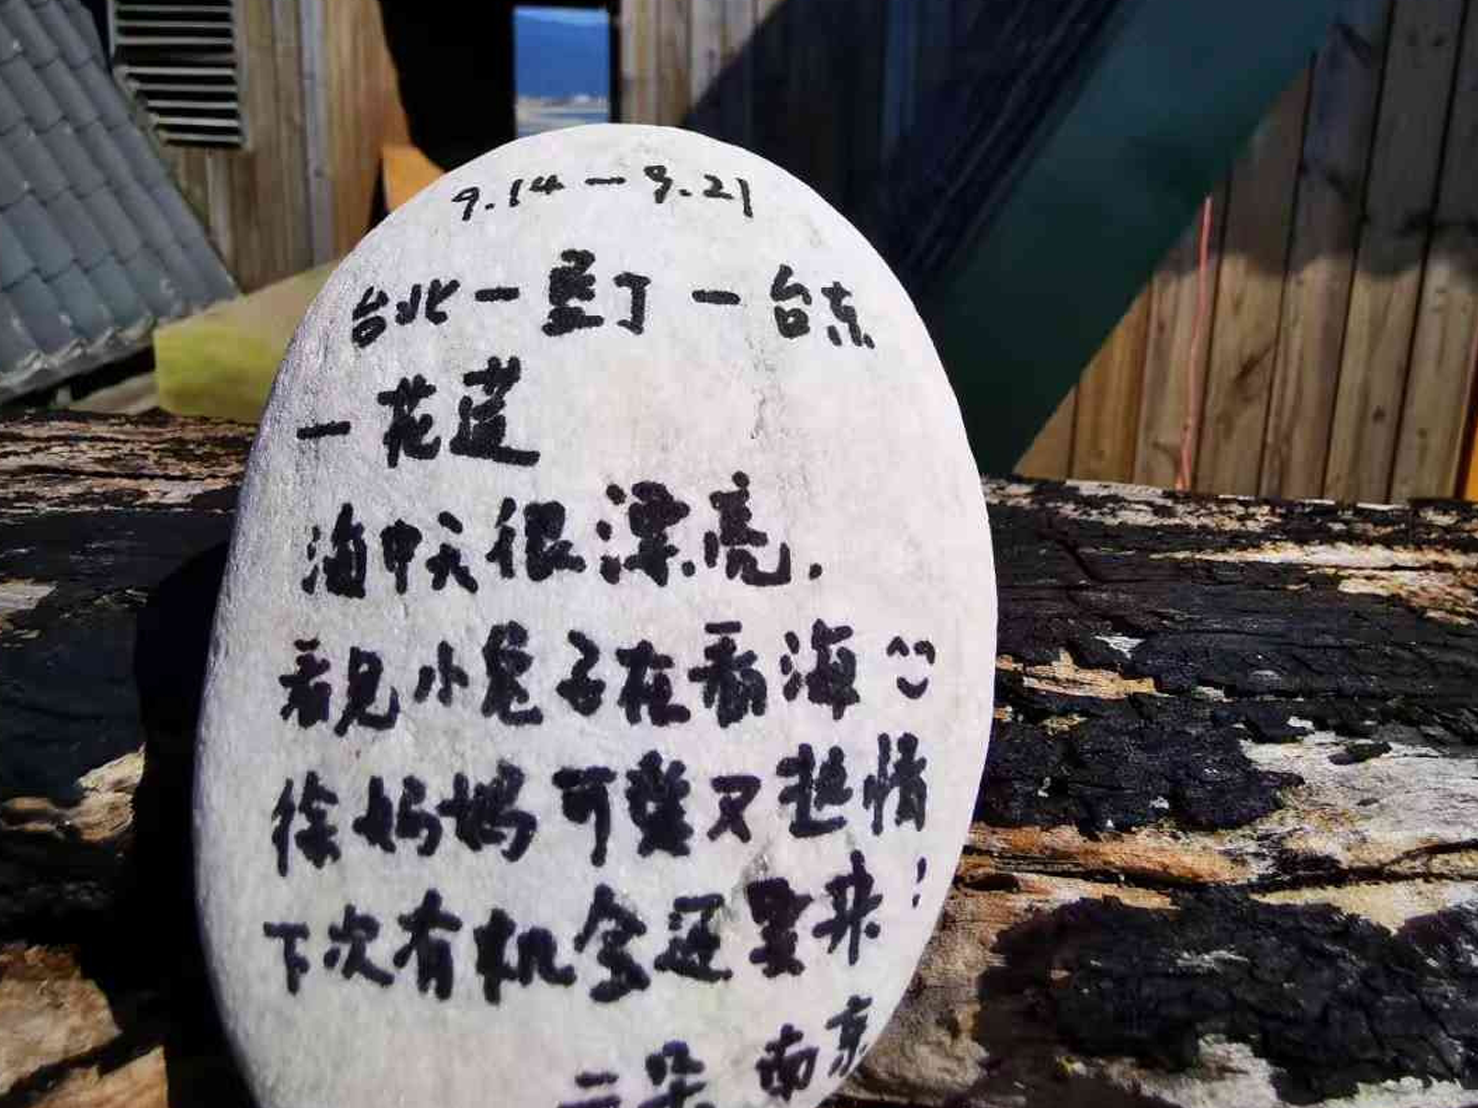 9.14-9.21
台北-垦丁-台东
-花莲
海中天很漂亮.
看见小兔子在看海
徐妈妈可爱又热情
下次有机会还要来!
南京